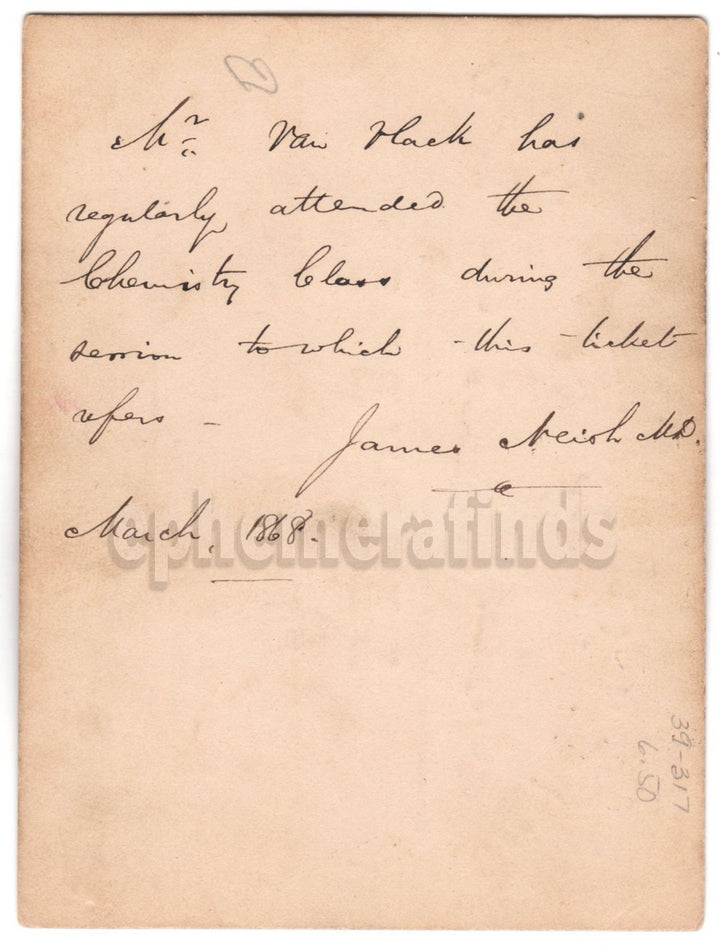 Mr. Van Vlack has
regularly attended the
Chemistry Class during the
session to which this ticket
refers -
James Neish MD.
March, 1868.
ephemerafinds
39-317
6.50